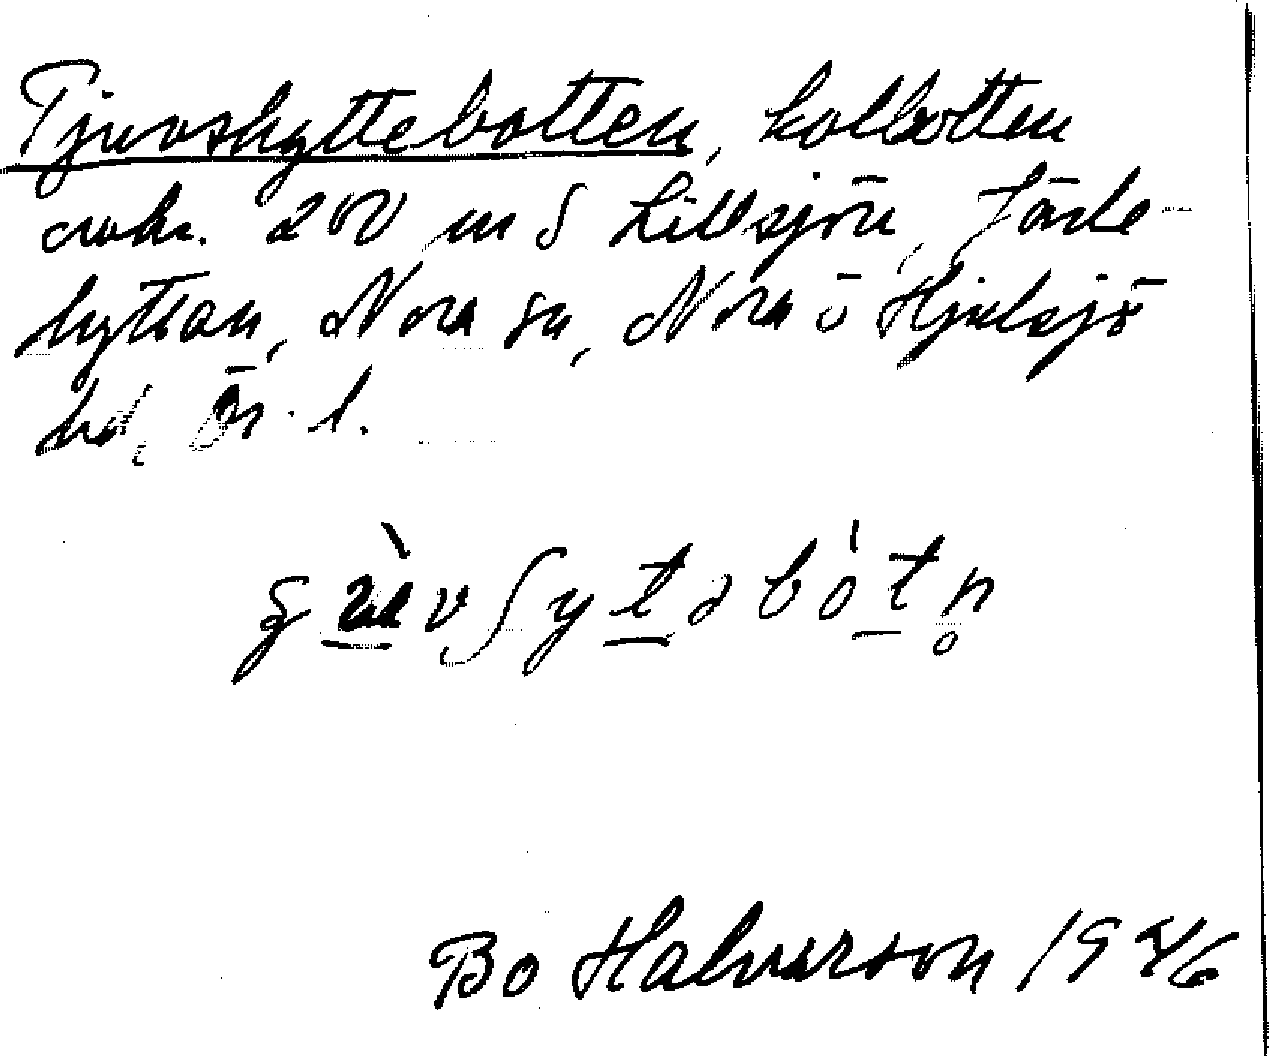 Tjuvskyttebotten, kolbotten
omkr. 200 m S Lillsjön, Järle-
hyttan, Nora sn, Nora o Hjulsjö
hd, Ör. l.
Bo Halvarson 1946